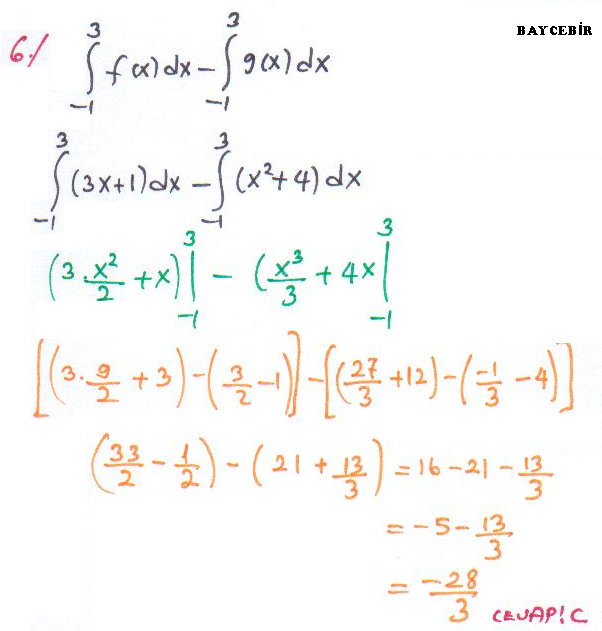 BAYCEBİR
6./ ∫₋₁³ f(x)dx − ∫₋₁³ g(x)dx
∫₋₁³ (3x+1)dx − ∫₋₁³ (x²+4)dx
(3·x²/2 + x)|₋₁³ − (x³/3 + 4x|₋₁³
[(3·9/2 + 3) − (3/2 − 1)] − [(27/3 + 12) − (−1/3 − 4)]
(33/2 − 1/2) − (21 + 13/3) = 16 − 21 − 13/3
= −5 − 13/3
= −28/3
CEVAP!C